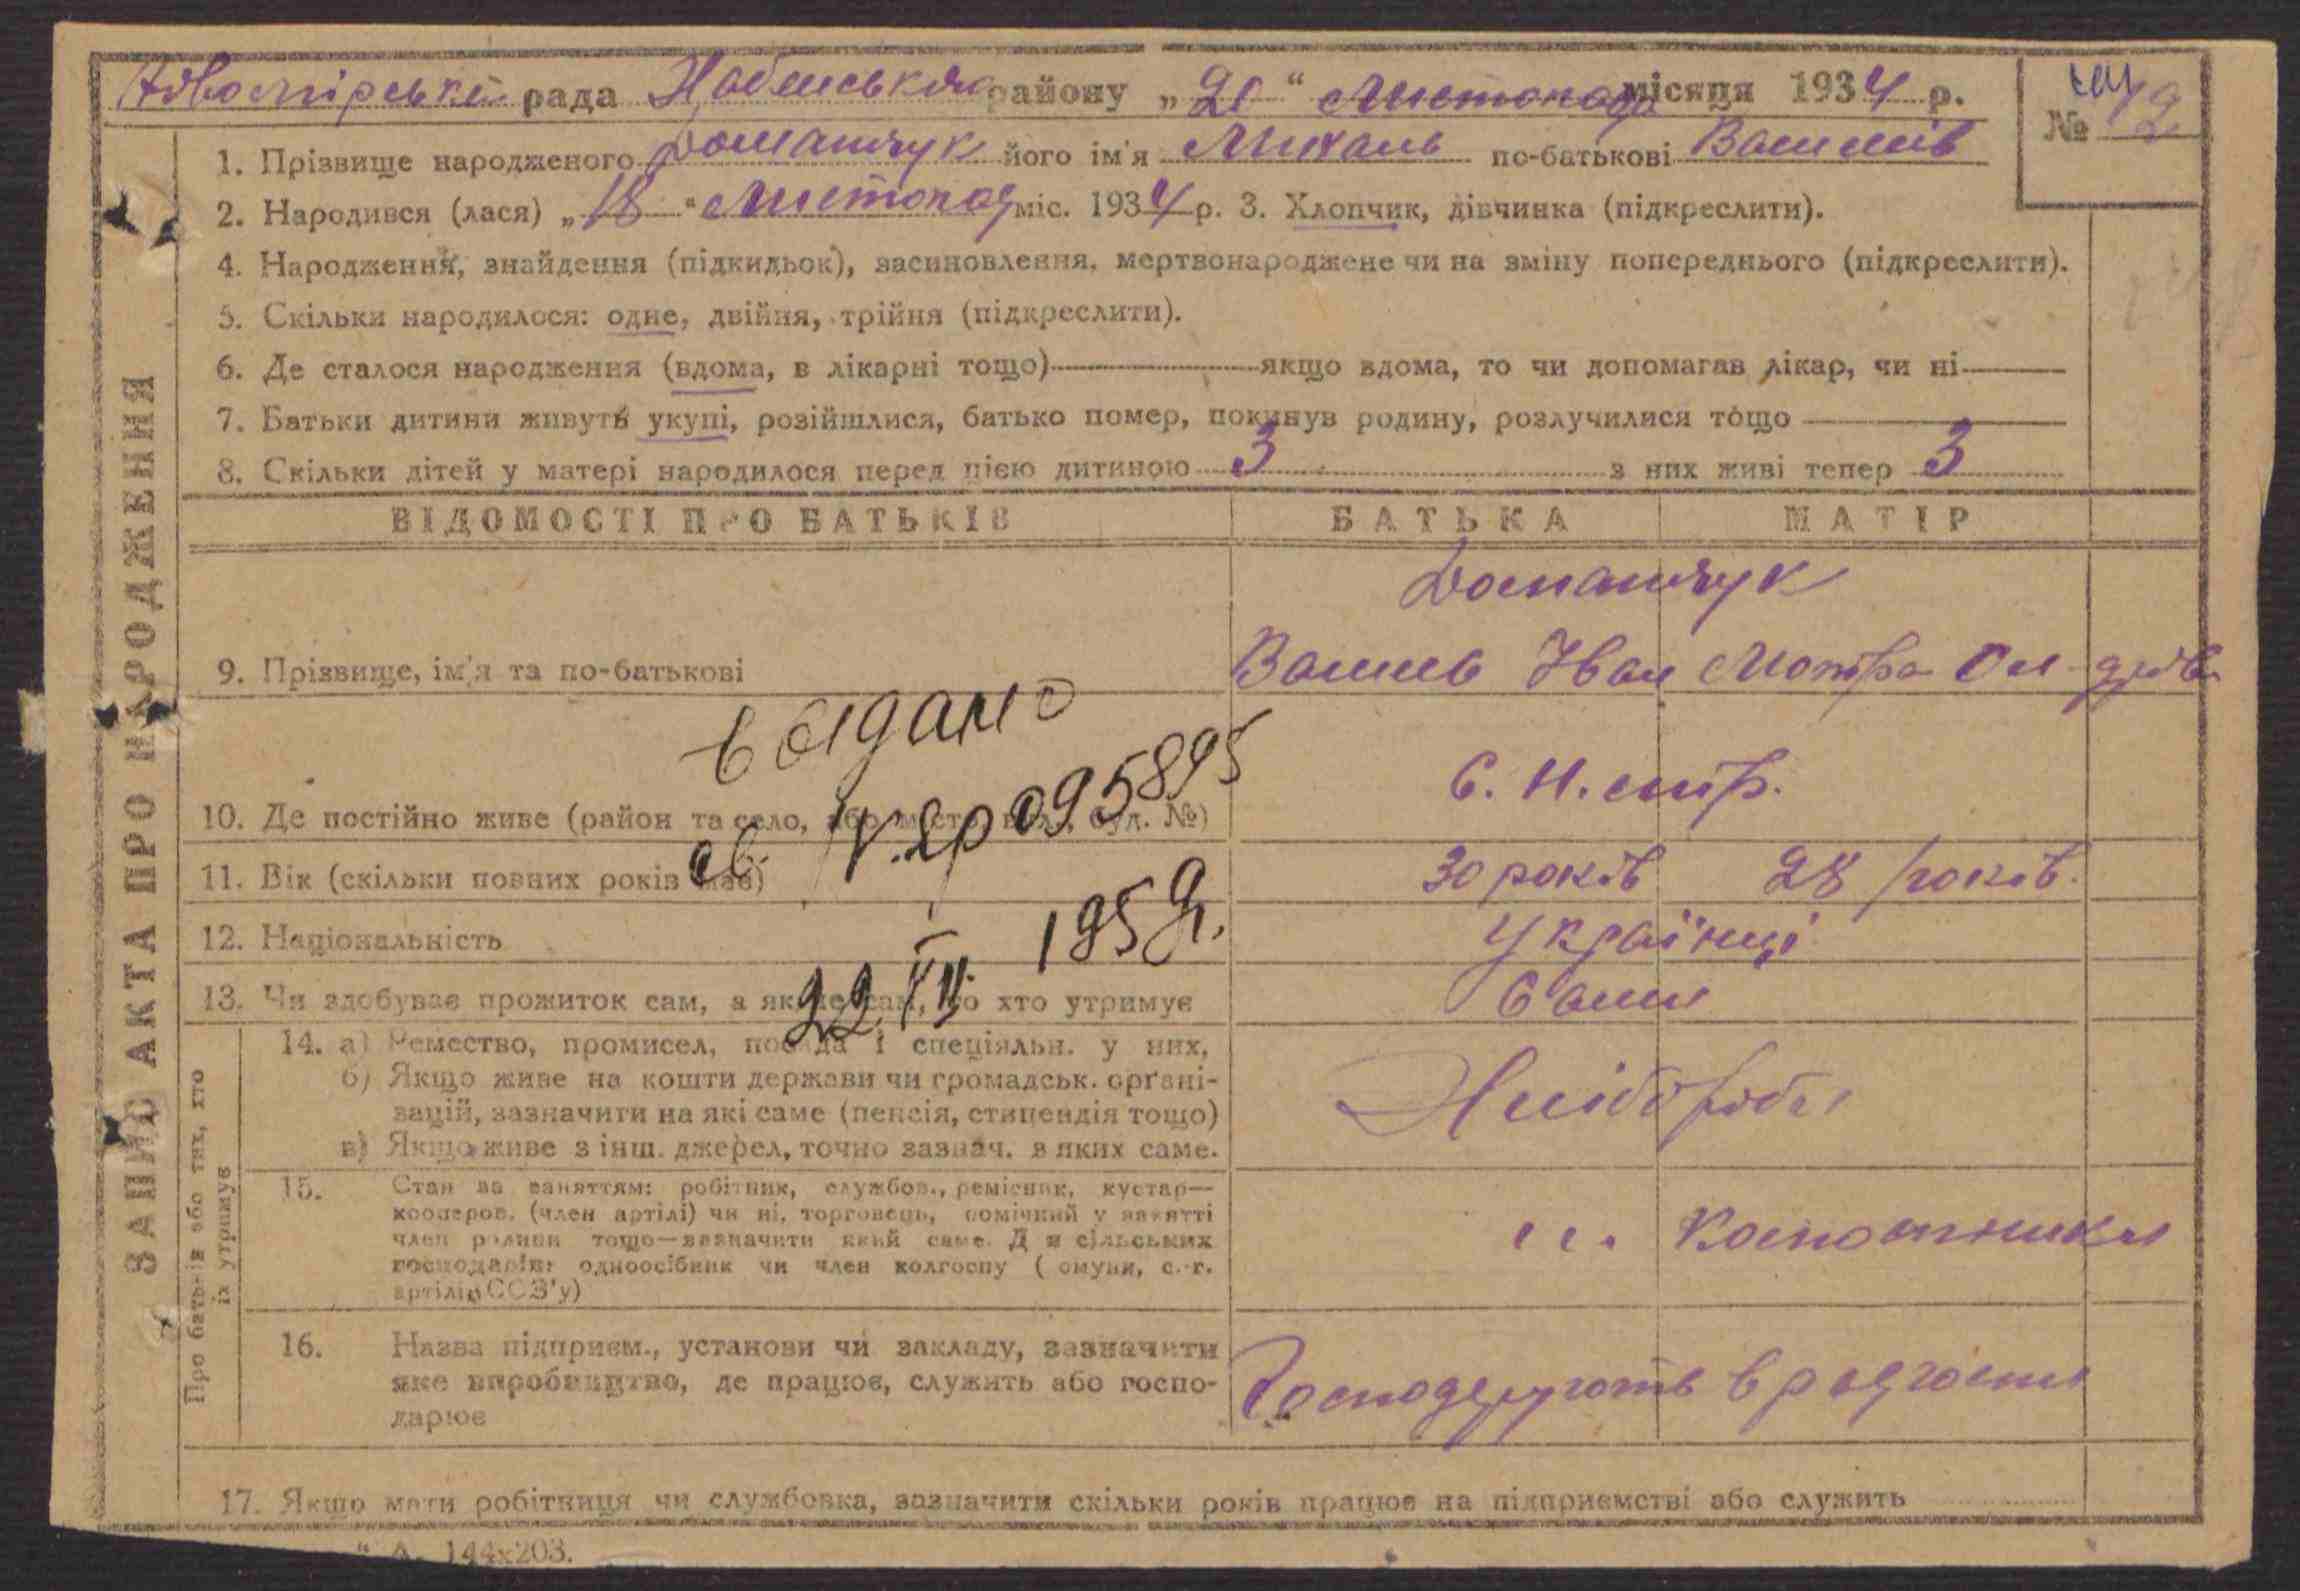 рада району „21“ Листопада місяця 1934 р.
№ 42
1. Прізвище народженого Домашчук його ім'я Михаль по-батькові Васильів
2. Народився (лася) „18“ Листопад міс. 1934 р. 3. Хлопчик, дівчинка (підкреслити).
4. Народження, знайдення (підкидьок), засиновлення, мертвонароджене чи на зміну попереднього (підкреслити).
5. Скільки народилося: одне, двійня, трійня (підкреслити).
6. Де сталося народження (вдома, в лікарні тощо) — якщо вдома, то чи допомагав лікар, чи ні —
7. Батьки дитини живуть укупі, розійшлися, батько помер, покинув родину, розлучилися тощо —
8. Скільки дітей у матері народилося перед цією дитиною 3 з них живі тепер 3
ЗАПИС АКТА ПРО НАРОДЖЕННЯ
ВІДОМОСТІ ПРО БАТЬКІВ БАТЬКА МАТІР
Домашчук
9. Прізвище, ім'я та по-батькові Василь Иван Мотря
видано
10. Де постійно живе (район та село, або місто, вул., буд. №)
св. 095895
11. Вік (скільки повних років має) 30 років 28 років.
12. Національність Українці
22 XII 1959г.
13. Чи здобуває прожиток сам, а як не сам, то хто утримує Сами
Про батьків або тих, хто їх утримує
14. а) Ремество, промисел, посада і спеціяльн. у них,
б) Якщо живе на кошти держави чи громадськ. органі-
зацій, зазначити на які саме (пенсія, стипендія тощо)
в) Якщо живе з інш. джерел, точно зазнач. з яких саме.
Хлібороби
15. Стан за заняттям: робітник, службов., ремісник, кустар—
кооперов. (член артілі) чи ні, торговець, помічний у занятті
член родини тощо—зазначити який саме. Для сільських
господарів: одноосібник чи член колгоспу (комуни, с.-г.
артілі, СОЗ'у)
16. Назва підприєм., установи чи закладу, зазначити
яке виробництво, де працює, служить або госпо-
дарює
Господарують в радгоспи
17. Якщо мати робітниця чи службовка, зазначити скільки років працює на підприємстві або служить
А. 144x203.